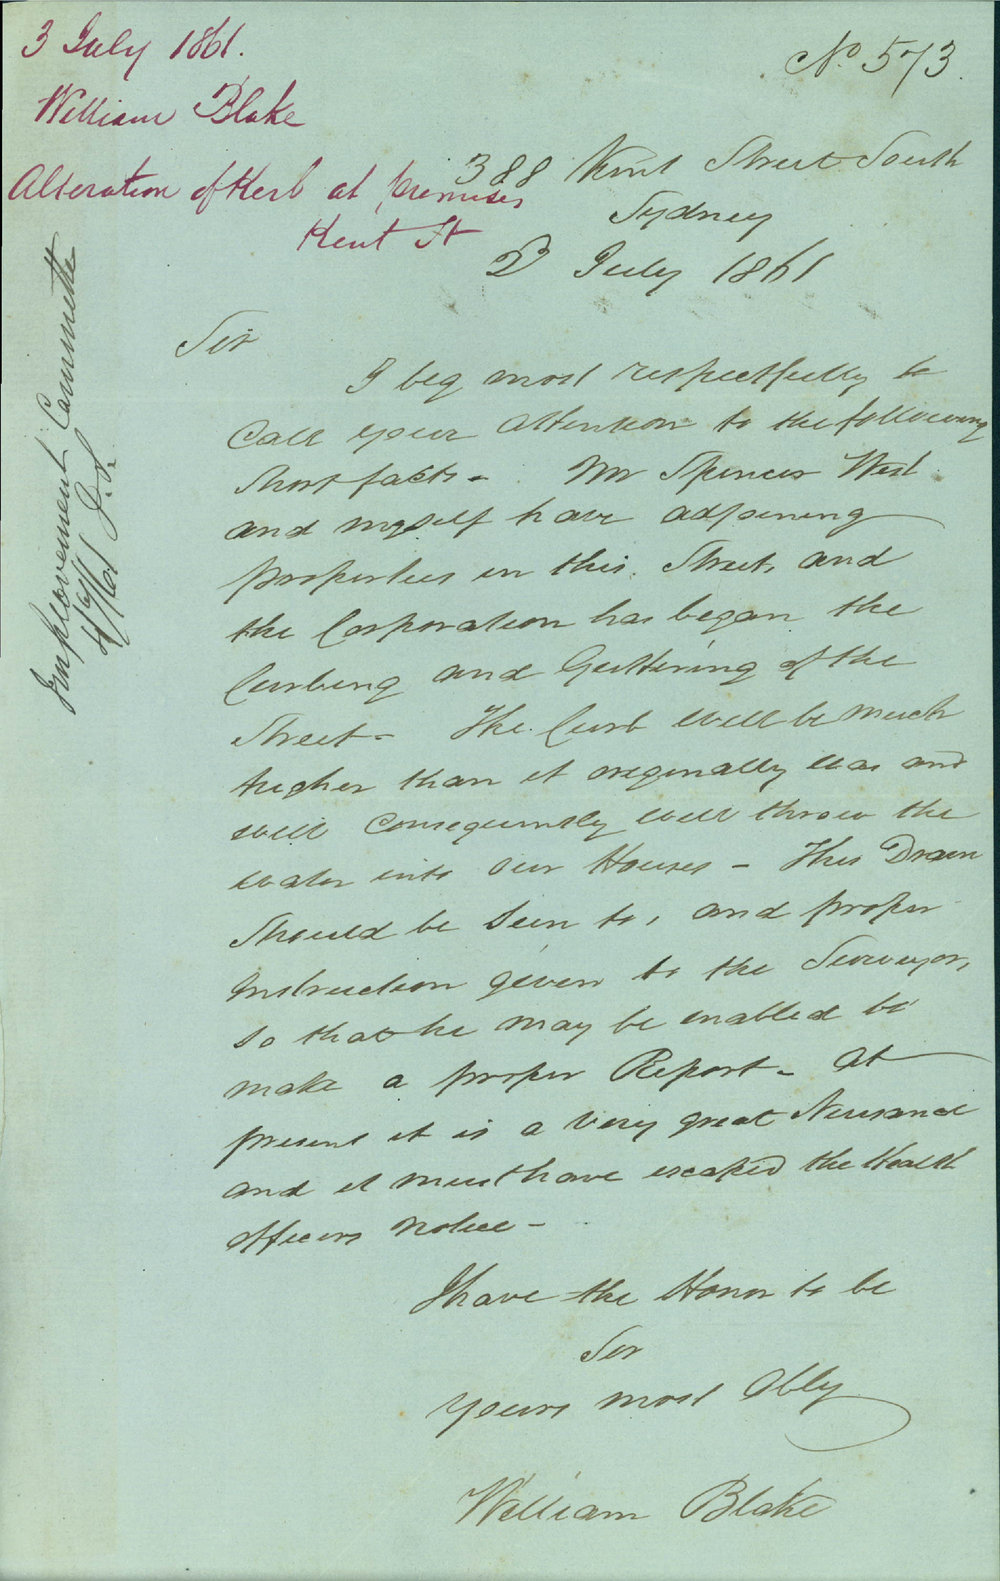 3 July 1861.
William Blake
Alteration of Kerb at premises
Kent St
No. 573.
388 Kent Street South
Sydney
3 July 1861
Improvement Committee
4/7/61
Sir
I beg most respectfully to
Call your Attention to the following
Short facts - Mr Spencer West
and myself have adjoining
properties in this Street, and
the Corporation has began the
Curbing and Guttering of the
Street - The Curb will be much
higher than it originally was and
will Consequently will throw the
water into our Houses - This Drain
Should be Seen to, and proper
Instruction given to the Surveyor,
So that he may be enabled to
make a proper Report - At
present it is a Very great Nuisance
and it must have escaped the Health
officers notice -
I have the Honor to be
Sir
Yours most Obly
William Blake